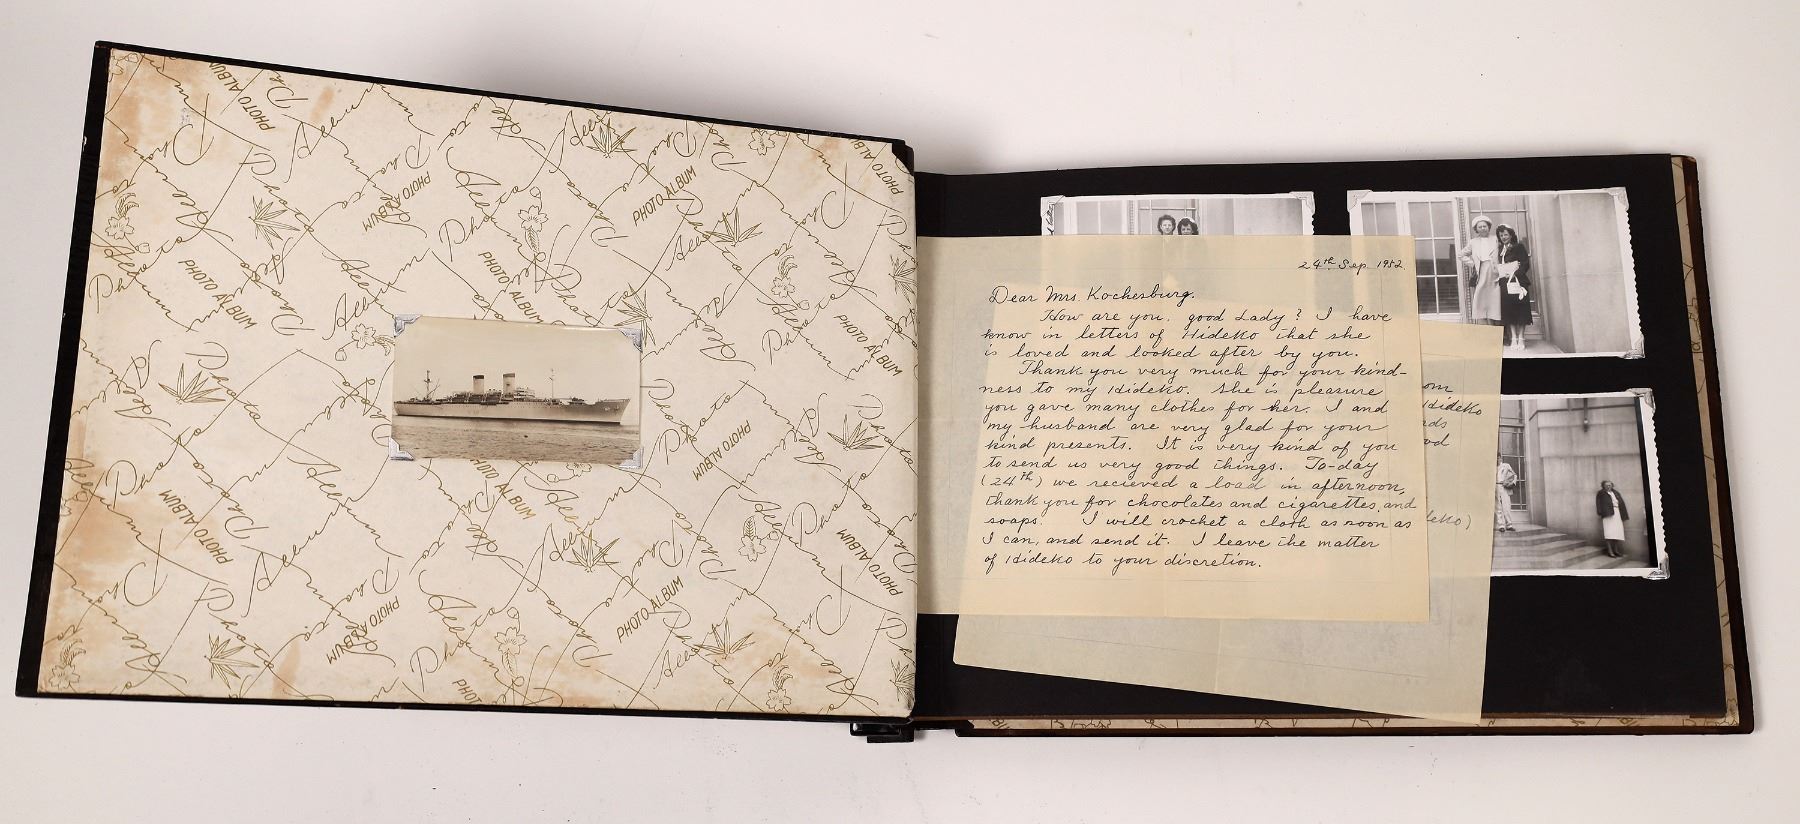 PHOTO ALBUM
24th Sep. 1952.
Dear Mrs. Kochesburg.
How are you, good Lady? I have
know in letters of Hideko that she
is loved and looked after by you.
Thank you very much for your kind-
ness to my Hideko. She is pleasure
you gave many clothes for her. I and
my husband are very glad for your
kind presents. It is very kind of you
to send us very good things. To-day
(24th) we recieved a load in afternoon,
thank you for chocolates and cigarettes, and
soaps. I will crochet a cloth as soon as
I can, and send it. I leave the matter
of Hideko to your discretion.
Hideko